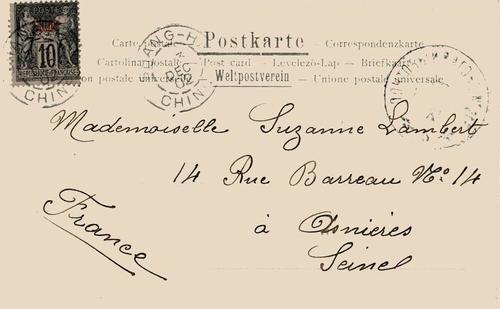 Carte Postale Postkarte Correspondenzkarte
Cartolina postale Post card Levelező-Lap Briefkaart
Union postale universelle Weltpostverein Unione postale universale
10
RÉPUBLIQUE FRANÇAISE
DEC
02
CHINE
Mademoiselle Suzanne Lambert
14 Rue Barreau No. 14
à Asnières
Seine
France